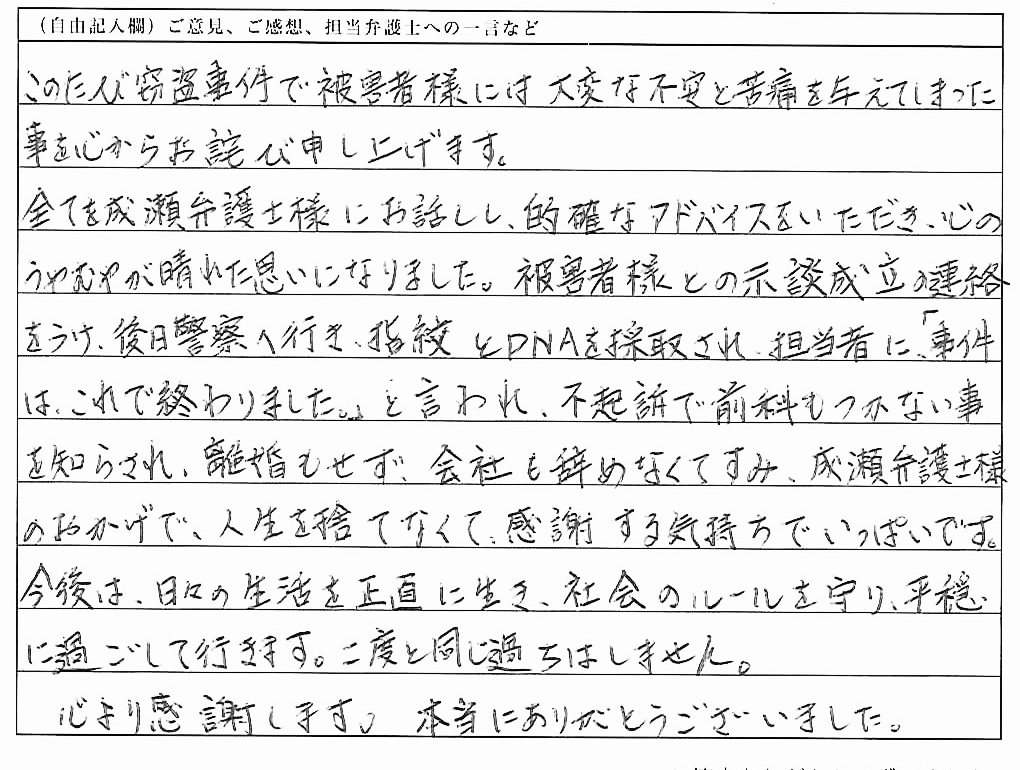 （自由記入欄）ご意見、ご感想、担当弁護士への一言など
このたび窃盗事件で被害者様には大変な不安と苦痛を与えてしまった
事を心からお詫び申し上げます。
全てを成瀬弁護士様にお話しし、的確なアドバイスをいただき、心の
うやむやが晴れた思いになりました。被害者様との示談成立の連絡
をうけ、後日警察へ行き、指紋とDNAを採取され、担当者に、「事件
は、これで終わりました。」と言われ、不起訴で前科もつかない事
を知らされ、離婚もせず、会社も辞めなくてすみ、成瀬弁護士様
のおかげで、人生を捨てなくて、感謝する気持ちでいっぱいです。
今後は、日々の生活を正直に生き、社会のルールを守り、平穏
に過ごして行きます。二度と同じ過ちはしません。
心より感謝します。本当にありがとうございました。